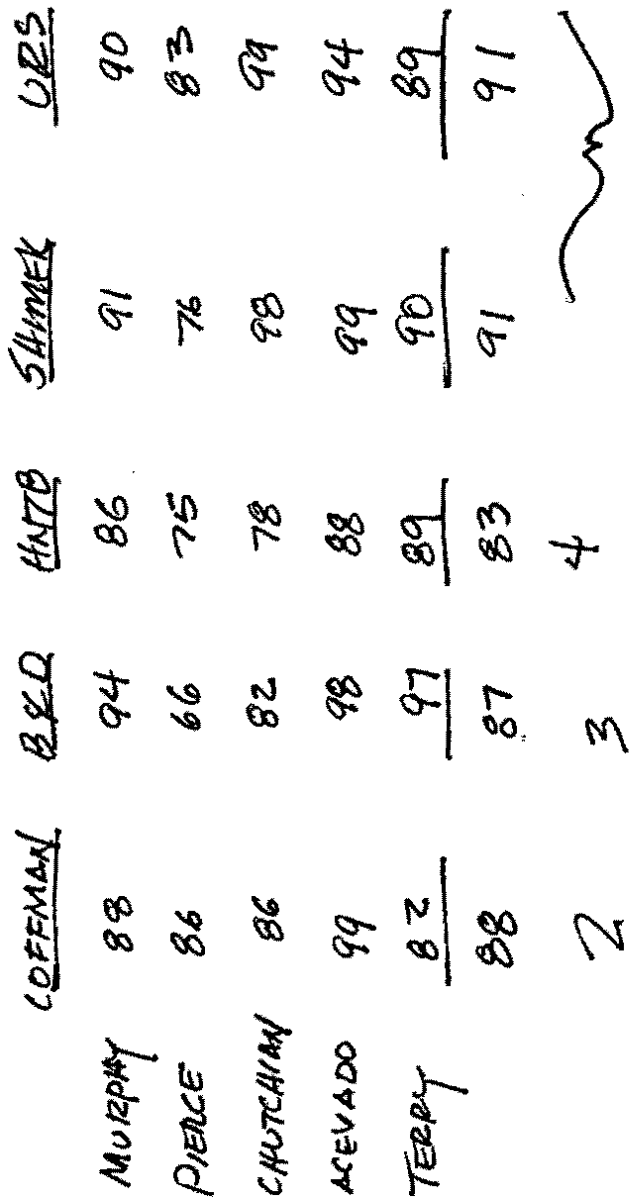 COFFMAN B&D HNTB SHIMEK URS
MURPHY 88 94 86 91 90
PIERCE 86 66 75 76 83
CHUTCHIAN 86 82 78 98 99
ACEVADO 99 98 88 99 94
TERRY 82 97 89 90 89
88 87 83 91 91
2 3 4